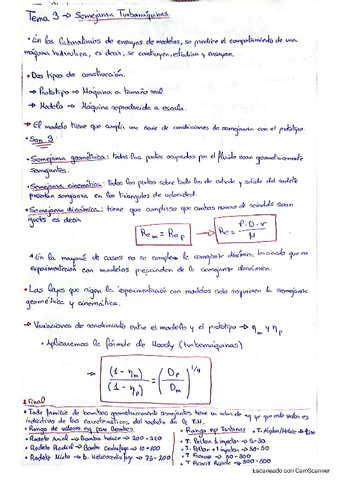 Tema 3 → Semejanza Turbomáquinas
• En los laboratorios de ensayos de modelos, se predice el comportamiento de una
máquina hidráulica, es decir, se construyen, estudian y ensayan.
• Dos tipos de construcción.
→ Prototipo → Máquina a tamaño real.
→ Modelo → Máquina reproducida a escala.
→ El modelo tiene que cumplir una serie de condiciones de semejanza con el prototipo.
• Son 3:
• Semejanza geométrica: todas las partes ocupadas por el fluido sean geométricamente
semejantes.
• Semejanza cinemática: todos los puntos sobre todo los de entrada y salida del rodete
presentan semejanza en los triángulos de velocidad.
• Semejanza dinámica: tiene que cumplirse que ambos números de reinolds sean
iguales es decir
Re m = Re p → Re = P · D · r / μ
• En la mayoría de casos no se cumple la semejanza dinámica, la
experimentación con modelos prescinden de la semejanza dinámica.
• Las leyes que rigen la experimentación con modelos solo requieren la semejanza
geométrica y cinemática.
→ Variaciones de rendimiento entre el modelo y el prototipo → η m y η p
• Aplicaremos la fórmula de Moody (turbomáquinas)
→ (1 - η m) / (1 - η p) = (D p / D m)^1/4
• Final
• Toda familia de bombas geométricamente semejantes tiene un valor de nq que este valor es
indicativo de las características del rodete en la T.H.
• Rango de valores nq para Bombas
• Rodete Axial → Bomba hélice → 200 - 320
• Rodete Radial → Bomba Centrífuga → 10 - 100
• Rodete Mixto → B. Heliocentrífuga → 75 - 200
• Rango nq Turbinas
• T. Kaplan/Hélice →
• T. Pelton 1 inyector → 5 - 30
• T. Pelton inyectores →
• T. Francis → 60 - 300
• T. Francis Rápida → 300 - 500
Escaneado con CamScanner